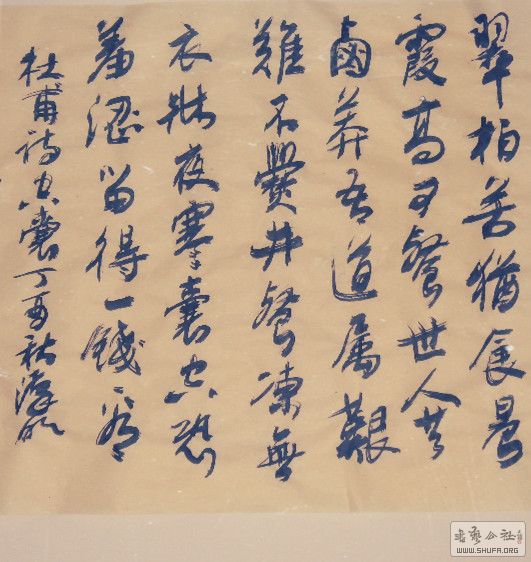 翠柏苦猶食晨
霞高可餐世人共
鹵莽吾道屬艱
難不爨井凍無
衣牀夜寒囊空恐
羞澀留得一錢看
杜甫詩空囊丁酉秋
書藝公社
WWW.SHUFA.ORG